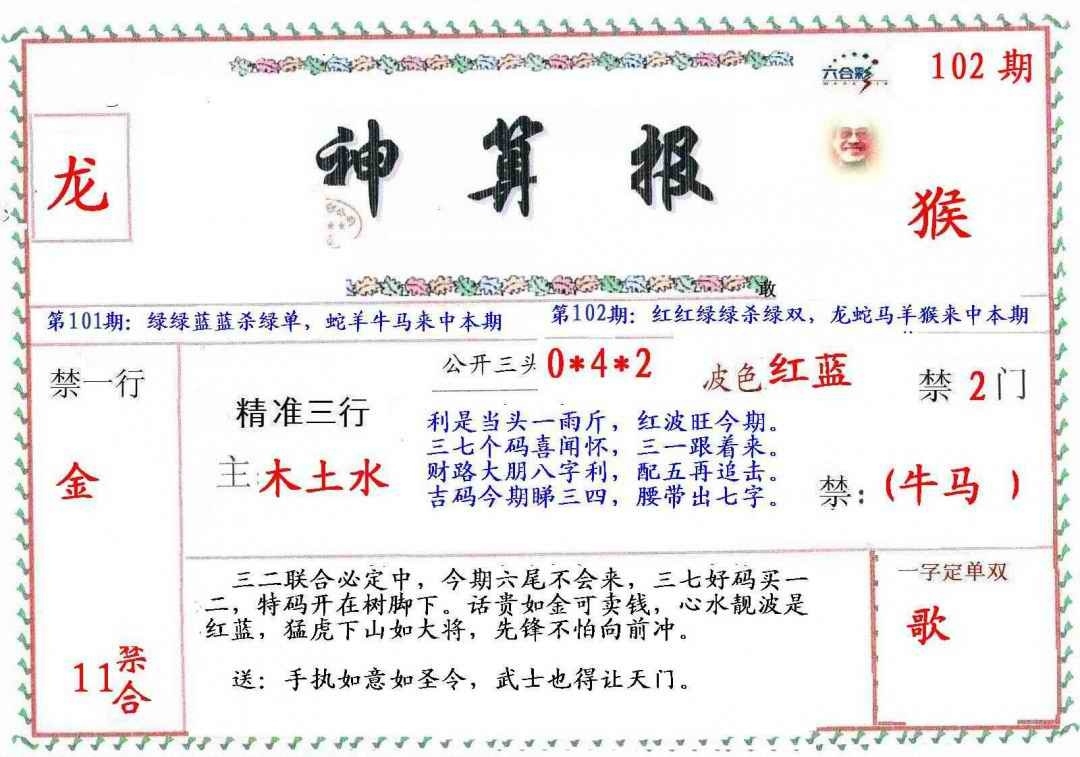 六合彩
102 期
龙
神算报
猴
敢
第101期：绿绿蓝蓝杀绿单，蛇羊牛马来中本期
第102期：红红绿绿杀绿双，龙蛇马羊猴来中本期
禁一行
金
11禁合
精准三行
主:木土水
公开三头0*4*2
波色红蓝
利是当头一雨斤，红波旺今期。
三七个码喜闻怀，三一跟着来。
财路大朋八字利，配五再追击。
吉码今期睇三四，腰带出七字。
禁2门
禁:(牛马 )
三二联合必定中，今期六尾不会来，三七好码买一
二，特码开在树脚下。话贵如金可卖钱，心水靓波是
红蓝，猛虎下山如大将，先锋不怕向前冲。
送：手执如意如圣令，武士也得让天门。
一字定单双
歌